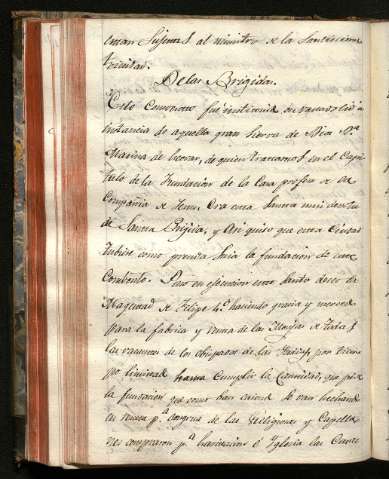 eran Sujetos al ministro de la Santissima
trinidad.
De las Brigidas.
Este Convento fue instituido en Valladolid a
instancia de aquella gran sierva de Dios Dª
Marina de Escovar, de quien tratamos en el Capi
tulo de la fundacion de la Casa profesa de la
Compañia de Jesus. Era esta Señora mui devota
de Santa Brijida, y Asi quiso que esta Ciudad
tubiese como prenda Suia la fundacion de este
Combento. Puso en execucion este Santo deseo la
Magestad de Felipe 4º haciendo gracia y merced
para la fabrica y renta de las Monjas de todas
las vacantes de los obispados de las Indias por tiem
po limitado hasta Cumplir la Cantidad, que pide
la fundacion
en renta pª congrua de las Religiosas y Capella
nes compraron pª habitacion e Yglesia las Casas